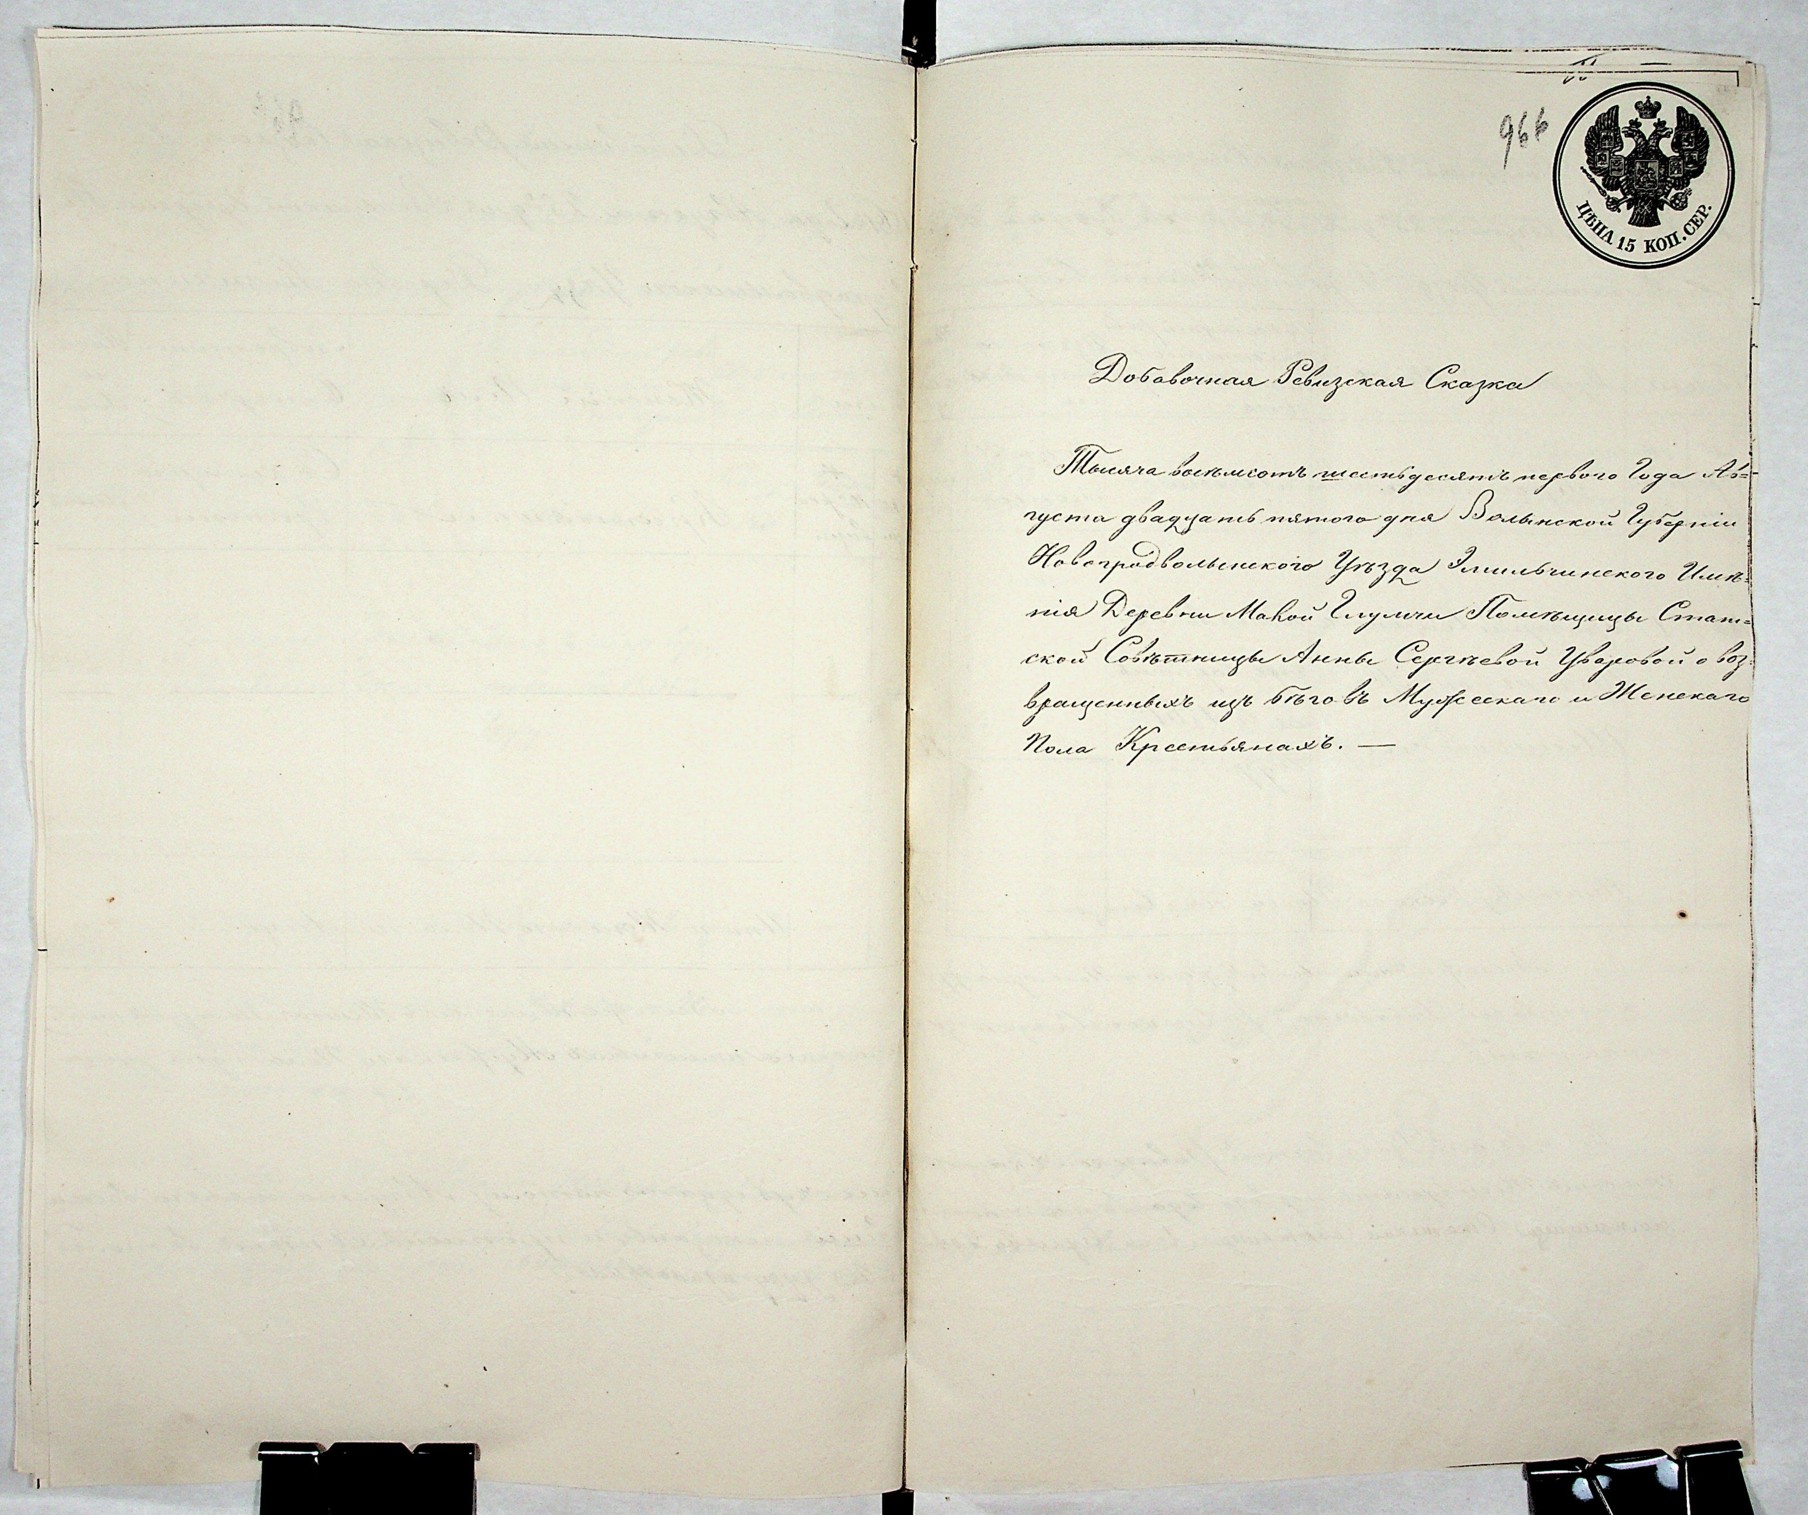 966
ЦѢНА 15 КОП. СЕР.
Добавочная Ревизская Сказка
Тысяча восемсотъ шестьдесятъ первого Года Ав=
густа двадцать пятого дня Волынской Губерніи
Новоградволынского Уѣзда Эмильчинского Имѣ=
нія Деревни Малой Глумчи Помѣщицы Стат=
ской Совѣтницы Анны Сергѣевой Уваровой о воз=
вращенныхъ изъ бѣговъ Мужескаго и Женскаго
Пола Крестьянахъ. —